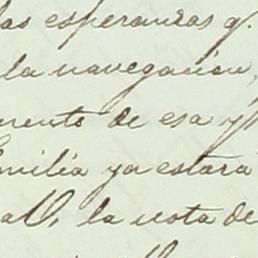 las esperanzas q.
la navegacion,
mento de esa y
Emilia ya estará
all, la nota de